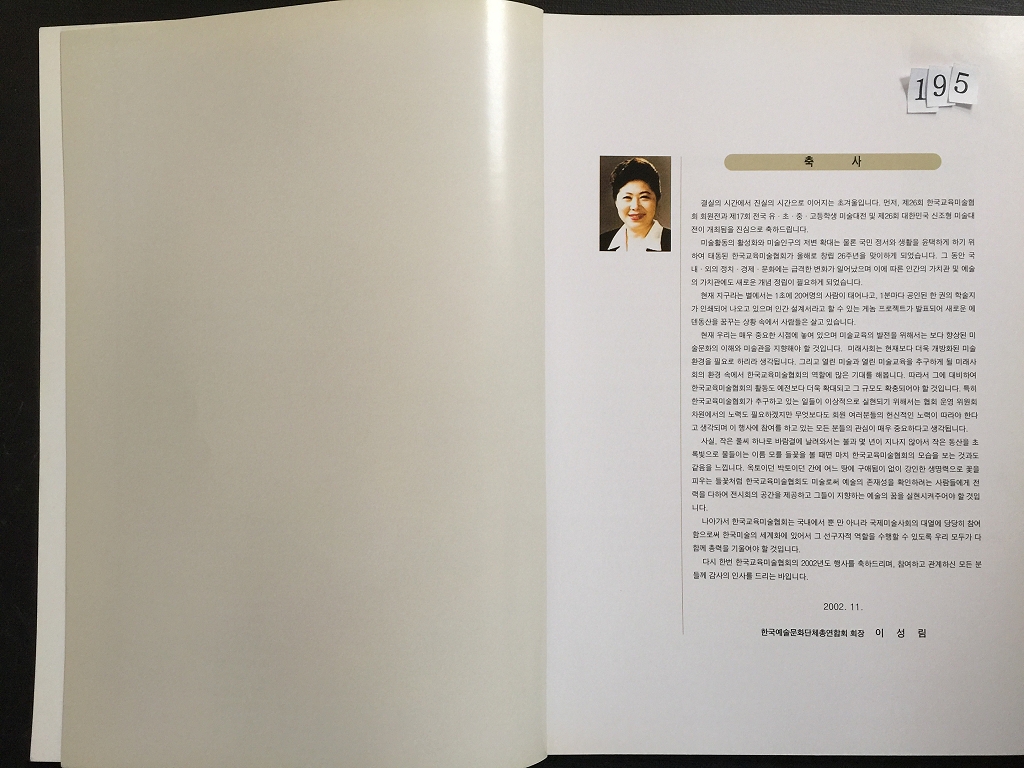 195
축 사
결실의 시간에서 진실의 시간으로 이어지는 초겨울입니다. 먼저, 제26회 한국교육미술협
회 회원전과 제17회 전국 유·초·중·고등학생 미술대전 및 제26회 대한민국 신조형 미술대
전이 개최됨을 진심으로 축하드립니다.
미술활동의 활성화와 미술인구의 저변 확대는 물론 국민 정서와 생활을 윤택하게 하기 위
하여 태동된 한국교육미술협회가 올해로 창립 26주년을 맞이하게 되었습니다. 그 동안 국
내·외의 정치·경제·문화에는 급격한 변화가 일어났으며 이에 따른 인간의 가치관 및 예술
의 가치관에도 새로운 개념 정립이 필요하게 되었습니다.
현재 지구라는 별에서는 1초에 20여명의 사람이 태어나고, 1분마다 공인된 한 권의 학술지
가 인쇄되어 나오고 있으며 인간 설계서라고 할 수 있는 게놈 프로젝트가 발표되어 새로운 에
덴동산을 꿈꾸는 상황 속에서 사람들은 살고 있습니다.
현재 우리는 매우 중요한 시점에 놓여 있으며 미술교육의 발전을 위해서는 보다 향상된 미
술문화의 이해와 미술관을 지향해야 할 것입니다. 미래사회는 현재보다 더욱 개방화된 미술
환경을 필요로 하리라 생각됩니다. 그리고 열린 미술과 열린 미술교육을 추구하게 될 미래사
회의 환경 속에서 한국교육미술협회의 역할에 많은 기대를 해봅니다. 따라서 그에 대비하여
한국교육미술협회의 활동도 예전보다 더욱 확대되고 그 규모도 확충되어야 할 것입니다. 특히
한국교육미술협회가 추구하고 있는 일들이 이상적으로 실현되기 위해서는 협회 운영 위원회
차원에서의 노력도 필요하겠지만 무엇보다도 회원 여러분들의 헌신적인 노력이 따라야 한다
고 생각되며 이 행사에 참여를 하고 있는 모든 분들의 관심이 매우 중요하다고 생각됩니다.
사실, 작은 풀씨 하나로 바람결에 날려와서는 불과 몇 년이 지나지 않아서 작은 동산을 초
록빛으로 물들이는 이름 모를 들꽃을 볼 때면 마치 한국교육미술협회의 모습을 보는 것과도
같음을 느낍니다. 옥토이던 박토이던 간에 어느 땅에 구애됨이 없이 강인한 생명력으로 꽃을
피우는 들꽃처럼 한국교육미술협회도 미술로써 예술의 존재성을 확인하려는 사람들에게 전
력을 다하여 전시회의 공간을 제공하고 그들이 지향하는 예술의 꿈을 실현시켜주어야 할 것입
니다.
나아가서 한국교육미술협회는 국내에서 뿐 만 아니라 국제미술사회의 대열에 당당히 참여
함으로써 한국미술의 세계화에 있어서 그 선구자적 역할을 수행할 수 있도록 우리 모두가 다
함께 총력을 기울여야 할 것입니다.
다시 한번 한국교육미술협회의 2002년도 행사를 축하드리며, 참여하고 관계하신 모든 분
들께 감사의 인사를 드리는 바입니다.
2002. 11.
한국예술문화단체총연합회 회장 이 성 림